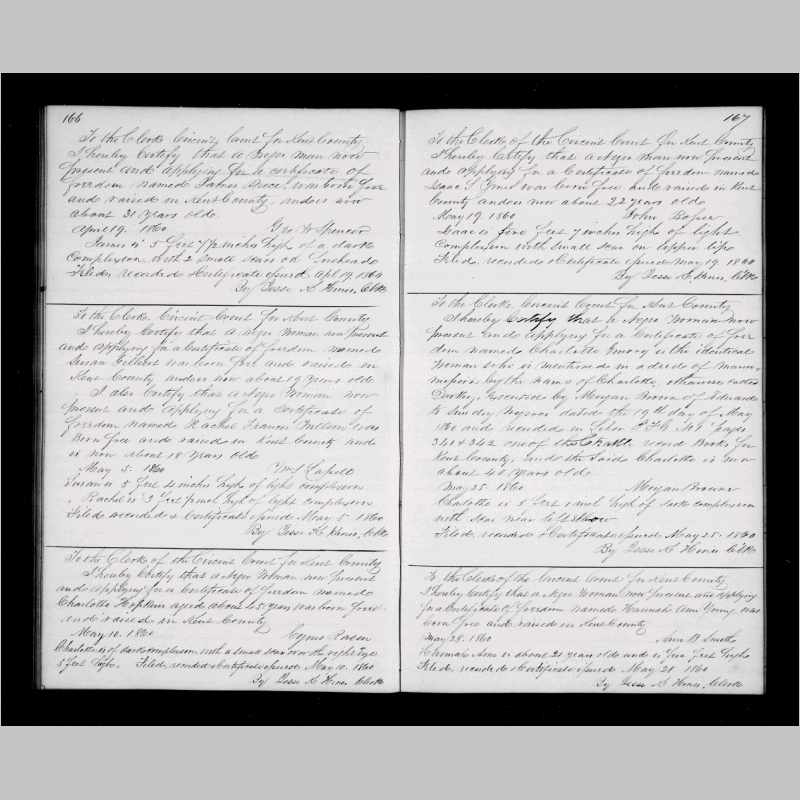 166
To the Clerk Circuit Court for Kent County
I hereby Certify that a Negro man now
present and applying for a certificate of
freedom named James was born free
and raised in Kent County, and is now
about 21 years old
April 19. 1860 Geo W Spencer
James is 5 feet 7½ inches high of a dark
Complexion with 2 small scars on forehead
Filed, recorded & Certificate issued Apl 19 1860
By Jesse K Hines, Clk
To the Clerk Circuit Court for Kent County
I hereby Certify that a Negro Woman now present
and applying for a Certificate of freedom named
Susan was born free and raised in
Kent County and is now about 19 years old.
I also Certify that a Negro Woman now
present and applying for a Certificate of
freedom named Rachel Frances was
born free and raised in Kent County and
is now about 18 years old
May 5. 1860
Susan is 5 feet 4 inches high of light complexion
Rachel is 5 feet 1 inch high of light complexion
Filed recorded & Certificates issued May 5 1860
By Jesse K. Hines, Clk
To the Clerk of the Circuit Court for Kent County
I hereby Certify that a Negro Woman now present
and applying for a Certificate of freedom named
Charlotte Hopkins aged about 45 years was born free
and raised in Kent County
May 10. 1860 Cyrus Rasin
Charlotte is of dark complexion with a small scar over the right eye &
5 feet high. Filed, recorded & Certificate issued May 10. 1860
By Jesse K Hines Clerk
167
To the Clerk of the Circuit Court for Kent County
I hereby Certify that a Negro man now present
and applying for a Certificate of freedom named
Isaac was born free and raised in Kent
County and is now about 22 years old
May 19. 1860 John
Isaac is five feet 7 inches high of light
Complexion with small scar on upper lip
Filed, recorded & Certificate issued May 19. 1860
By Jesse K Hines, Clk
To the Clerk Circuit Court for Kent County
I hereby Certify that a Negro Woman now
present and applying for a Certificate of free
dom named Charlotte Emory is the identical
Woman who is mentioned in a deed of Manu
mission by the name of Charlotte,
executed by Morgan Brown of Edward
to Sundry Negroes dated the 19th day of May
1840 and recorded in Liber Pages
341 & 342 one of the record Books for
Kent County, and the said Charlotte is now
about 40 years old
May 25. 1860 Morgan Brown
Charlotte is 5 feet 1 inch high of dark complexion
with scar near left
Filed, recorded & Certificate issued May 25. 1860
By Jesse K. Hines Clk
To the Clerk of the Circuit Court for Kent County
I hereby Certify that a Negro Woman now present and applying
for a Certificate of freedom named Hannah Ann Young was
born free and raised in Kent County
May 28. 1860 Ann M Smith
Hannah Ann is about 21 years old and is five feet high
Filed, recorded & Certificate issued May 28 1860
By Jesse K Hines, Clerk